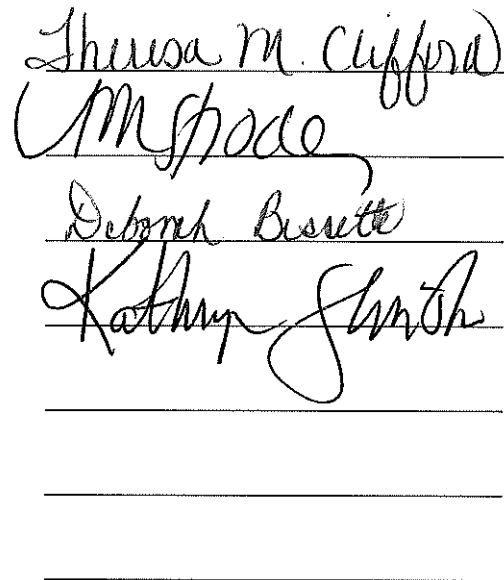 Theresa M. Clifford
Deborah Bissette
Kathryn Smith